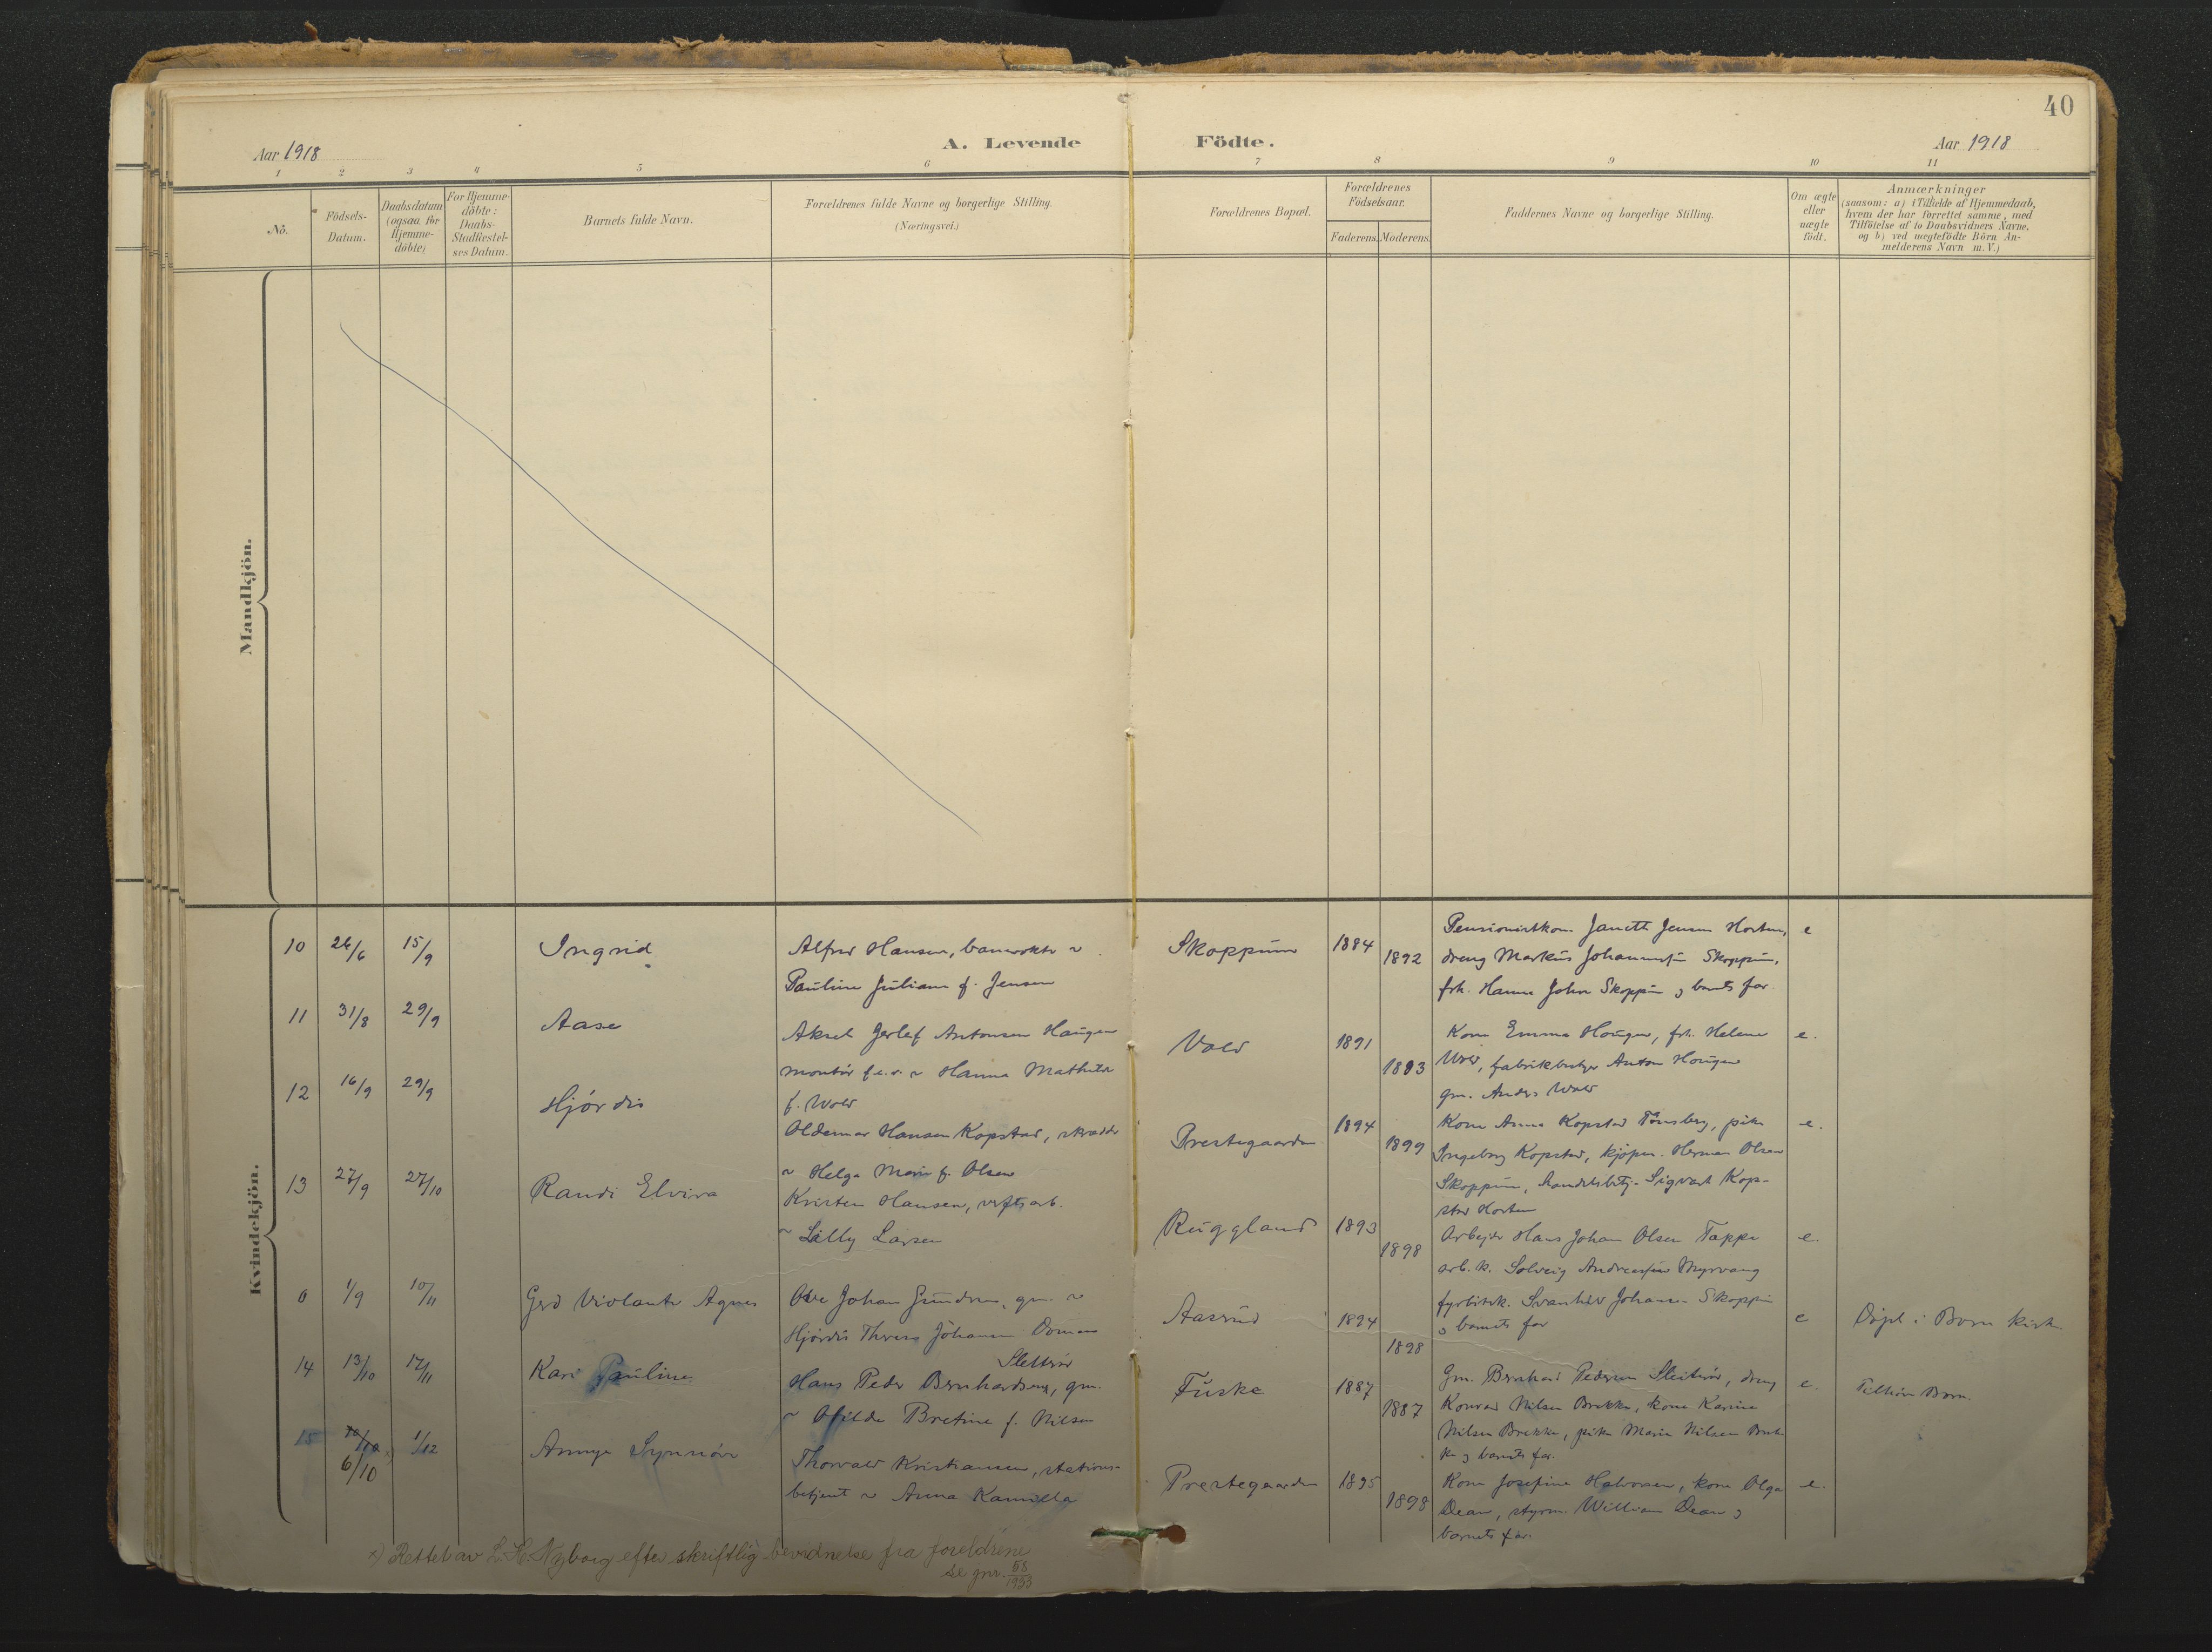 40
Aar 1918
A. Levende Födte.
Aar 1918
1 2 3 4 5 6 7 8 9 10 11
No.
Födsels-Datum.
Daabsdatum (ogsaa for Hjemme-döbte)
For Hjemme-döbte: Daabs-Stadfæstel-ses Datum.
Barnets fulde Navn.
Forældrenes fulde Navne og borgerlige Stilling.
(Næringsvei.)
Forældrenes Bopæl.
Forældrenes Födselsaar.
Faderens. Moderens.
Faddernes Navne og borgerlige Stilling.
Om ægte eller uægte födt.
Anmærkninger
(saasom: a) i Tilfælde af Hjemmedaab,
hvem der har forrettet samme, med
Tilföielse af to Daabsvidners Navne,
og b) ved uægtefödte Börn An-
melderens Navn m. V.)
Mandkjön.
Kvindekjön.
10 26/6 15/9 Ingrid
Alfred Hansen, banevokter
Pauline Juliane f. Jensen
Skoppum 1884 1892
Pensionistkone Janette Jensen Horten,
dreng Markus Johannesen Skoppum,
frk. Hanna Johns Skoppum og barnets far
e
11 31/8 29/9 Aase
Aksel Gerlef Antonsen Haugen
montör f. e. v. Hanna Mathilde
f. Wold
Vold 1891 1893
Kone Emma Hougen, frk. Helene
Wold, Anton Hougen
gm. Anders Wold
e.
12 16/9 29/9 Hjördis
Oldemar Hansen Kopstad, skrædder
Helga Marie f. Olsen
Prestegaarden 1894 1899
Kone Anna Kopstad Tönsberg, pike
Ingeborg Kopstad, kjöpm. Herman Olsen
Skoppum, handelsbetj. Sigvart Kop-
stad Horten
e.
13 27/9 27/10 Randi Elvira
Kristen Hansen, verftsarb.
Lilly Larsen
Ruggland 1893 1898
Arbejder Hans Johan Olsen Tappe
arb. k. Solveig Andreassen Myrvang
fyrbötrk. Svanhild Johansen Skoppum
og barnets far
e.
0 1/9 10/11 Gerd Violante Agnes
Ole Johan Gundersen, gm.
Hjördis Theresa Johansen
Aasrud 1894 1898
e
Döpt i Borre kirke
14 13/10 17/11 Kari Pauline
Slettvöi
Hans Peder Bernhardsen, gm.
Hilda Bretine f. Nilsen
Fuske 1887 1887
Gm. Bernhard Pedersen, dreng
Konrad Nilsen Brekke, kone Karine
Nilsen Brekke, pike Marie Nilsen Brek-
ke og barnets far.
e.
Tilhörer Borre
15 10/10 x) 6/10 1/12 Annye Synnöve
Thorvald Kristiansen, stations-
betjent Anna Kamilla
Prestegaarden 1895 1898
Kone Josefine Halvorsen, kone Olga
Dean, styrm. William Dean og
barnets far.
e.
x) Rettet av L. H. Nyborg efter skriftlig bevidnelse fra foreldrene
se gnr. 58/1953